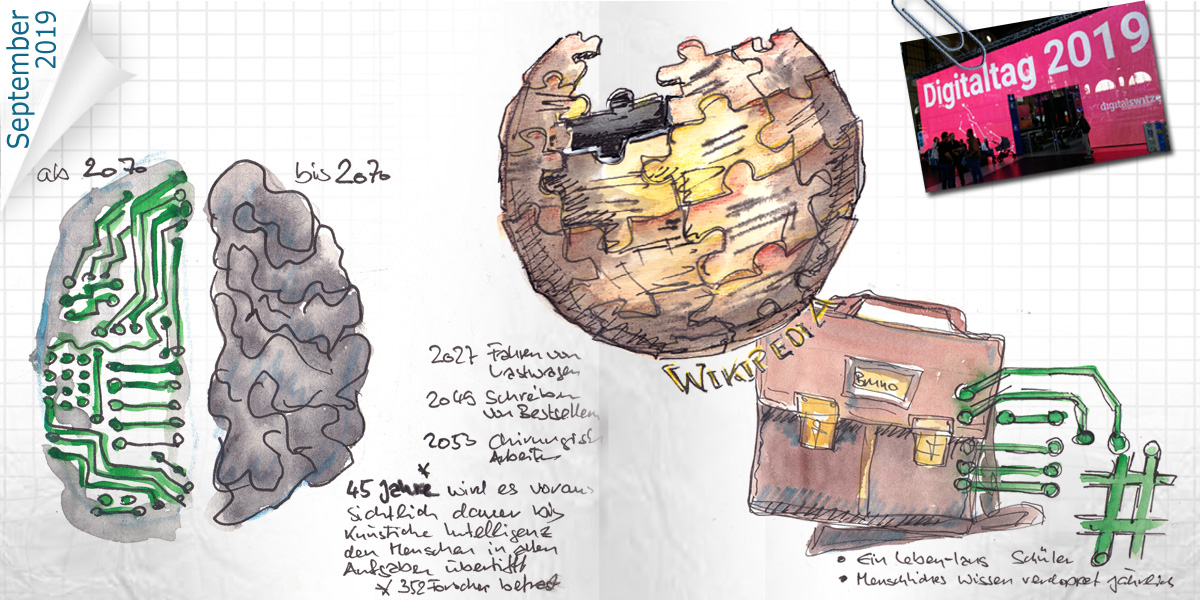 September
2019
ab 2070
bis 2070
2027 Fahren von
Lastwagen
2049 Schreiben
von Bestsellern
2053 Chirurgisch
Arbeiten
*
45 Jahre wird es voraus
sichtlich dauern bis
Künstliche Intelligenz
den Menschen in allen
Aufgaben übertifft
* 352 Forscher befragt
WIKIPEDIA
Digitaltag 2019
digitalswitze
Bruno
#
• Ein Leben-lang Schüler
• Menschliches Wissen verdoppelt jährlich